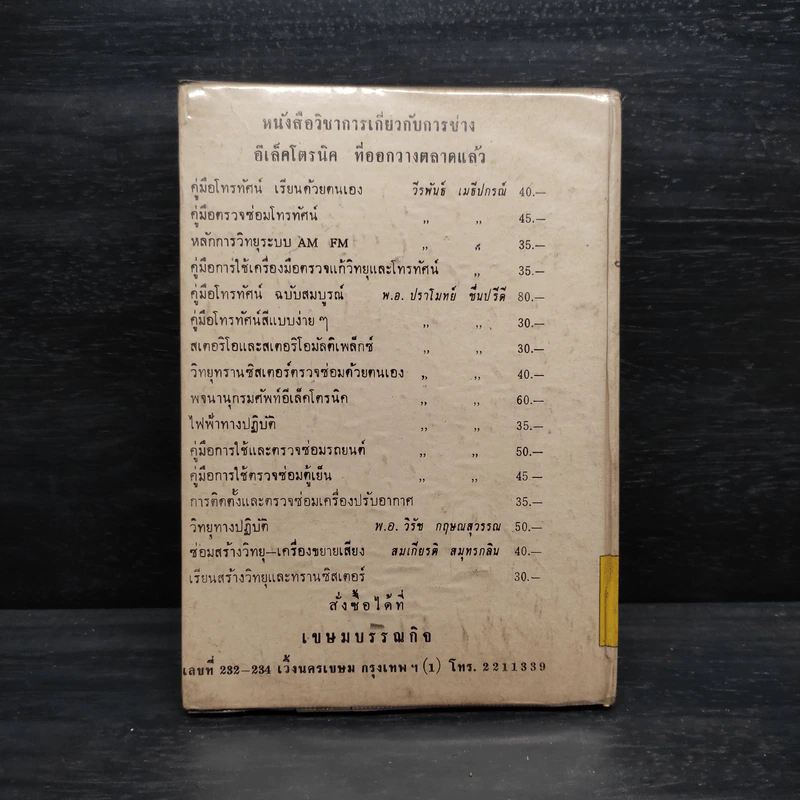 หนังสือวิชาการเกี่ยวกับการช่าง
อีเล็คโตรนิค ที่ออกวางตลาดแล้ว
คู่มือโทรทัศน์ เรียนด้วยตนเอง วีรพันธ์ เมธีปกรณ์ 40.—
คู่มือตรวจซ่อมโทรทัศน์ ,, ,, 45.—
หลักการวิทยุระบบ AM FM ,, ,, 35.—
คู่มือการใช้เครื่องมือตรวจแก้วิทยุและโทรทัศน์ ,, 35.—
คู่มือโทรทัศน์ ฉบับสมบูรณ์ พ.อ. ปราโมทย์ ชื่นปรีดี 80.—
คู่มือโทรทัศน์สีแบบง่าย ๆ ,, ,, 30.—
สเตอริโอและสเตอริโอมัลติเพล็กซ์ ,, ,, 30.—
วิทยุทรานซิสเตอร์ตรวจซ่อมด้วยตนเอง ,, ,, 40.—
พจนานุกรมศัพท์อีเล็คโตรนิค ,, ,, 60.—
ไฟฟ้าทางปฏิบัติ ,, ,, 35.—
คู่มือการใช้และตรวจซ่อมรถยนต์ ,, ,, 50.—
คู่มือการใช้ตรวจซ่อมตู้เย็น ,, ,, 45 —
การติดตั้งและตรวจซ่อมเครื่องปรับอากาศ 35.—
วิทยุทางปฏิบัติ พ.อ. วิรัช กฤษณสุวรรณ 50.—
ซ่อมสร้างวิทยุ—เครื่องขยายเสียง สมเกียรติ สมุทรกลิน 40.—
เรียนสร้างวิทยุและทรานซิสเตอร์ 30.—
สั่งซื้อได้ที่
เขษมบรรณกิจ
เลขที่ 232—234 เวิ้งนครเขษม กรุงเทพ ฯ (1) โทร. 2211339